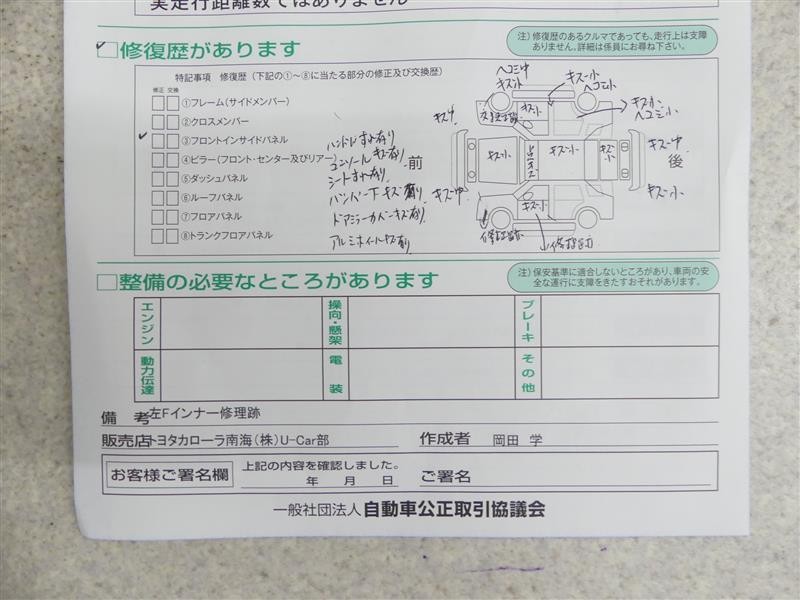 実走行距離数ではありません
修復歴があります
注）修復歴のあるクルマであっても、走行上は支障
ありません。詳細は係員にお尋ね下さい。
特記事項 修復歴（下記の①～⑧に当たる部分の修正及び交換歴）
修正 交換
①フレーム(サイドメンバー)
②クロスメンバー
③フロントインサイドパネル
④ピラー(フロント・センター及びリアー)
⑤ダッシュパネル
⑥ルーフパネル
⑦フロアパネル
⑧トランクフロアパネル
ハンドルすれ有り
コンソールキズ有り
シートすれ有り
バンパー下キズ有り
ドアミラーカバーキズ有り
アルミホイールキズ有り
前
後
ヘコミ中
キズ小
キズ小
ヘコミ小
キズ小
ヘコミ小
キズ中
キズ小
キズ中
キズ小
キズ小
キズ小
キズ中
キズ小
キズ小
修理跡
整備の必要なところがあります
注）保安基準に適合しないところがあり、車両の安
全な運行に支障をきたすおそれがあります。
エンジン
操向・懸架
ブレーキ
動力伝達
電装
その他
備考 左Fインナー修理跡
販売店 トヨタカローラ南海(株)U-Car部 作成者 岡田 学
お客様ご署名欄
上記の内容を確認しました。
年 月 日
ご署名
一般社団法人 自動車公正取引協議会